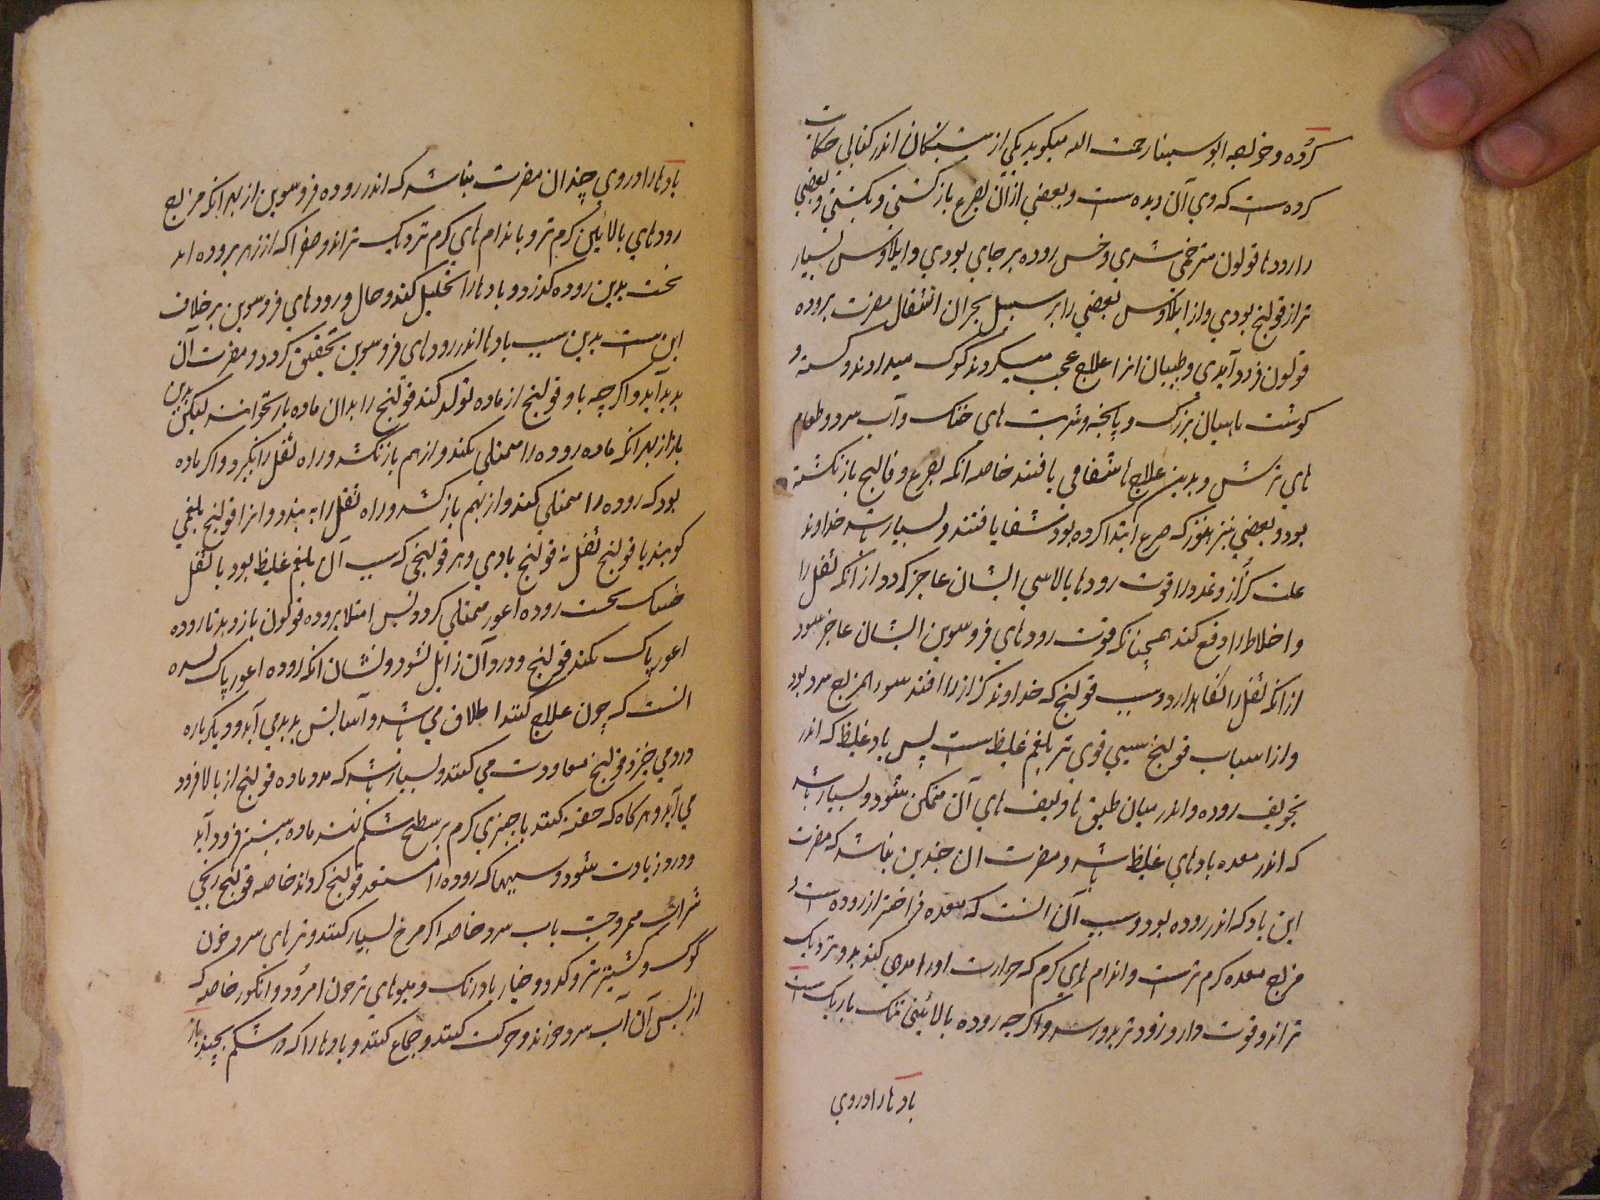 کرده و خواجه ابو سینا رحمت الله میکوید یکی از پیشینکان اندر کتابی حکایت
کرده ست که وی آن دیده ست و بعضی از آن بصرع باز کشتی و بکشتی و بعضی
را رودها قولون مترخی شدی و حس روده بر جای بودی و ایلاوس بسیار
تر از قولنج بودی و از ایلاوس بعضی را بر سبیل بحران انتقال مضرت بروده
قولون فرود آمدی و طبیبان انرا علاج عجب میکردند کوک میدادند و کسنه و
کوشت ماهیان بزرک و پایچه و شربت های خنک و آب سرد و طعام
های ترش و بدین علاج ها شفا می یافتند خاصه انکه بصرع و فالج باز نکشته
بود و بعضی نیز هنوز که صرع ابتدا کرده بود شفا یافتند و بسیار باشد خداوند
علت کزاز و غدد را قوت رودها بالاسی ایشان عاجز کردد از آنکه ثفل را
و اخلاط را دفع کند همچنانکه قوت رودهای فروسوین ایشان عاجز شود
از انکه ثفل را نکاهدارد و سبب قولنج که خداوند کزاز را افتد سوء المزاج سرد بود
و از اسباب قولنج سببی قوی تر بلغم غلیظ ست پس باد غلیظ که اندر
تجویف روده و اندر میان طبقها و لیف های آن متمکن شود و بسیار باشد
که اندر معده بادهای غلیظ باشد و مضرت ان چندین نباشد که مضرت
این باد که اندر روده بود و سبب آن انست که معده فراختر از روده است و
مزاج معده کرم ترست و اندام های کرم که حرارت او را مددی کند بدو نزدیک
تر اند و قوت دارو زود تر بدو رسد و اکر چه روده بالائین تنک باریک است
بادها را در وی
بادها را در وی چندان مضرت نباشد که اندر روده فروسوین از بهر انکه مزاج
رودهای بالائین کرم تر و باندام های کرم نزدیک تر اند و صفرا که از زهره بروده اید
نخست بدین روده کذرد و بادها را تحلیل کند و حال رودهای فروسوین بر خلاف
این ست بدین سبب بادها اندر رودهای فروسوین محتقن کردد و مضرت آن
پدید آید و اکر چه باد قولنج از ماده تولد کند قولنج را بدان ماده باز نخوانند لیکن بدین
باز از بهر انکه ماده روده را ممتلی نکند و از هم باز نکشد و راه ثفل را نکیرد و اکر ماده
بود که روده را ممتلی کند و از بهم باز کشد و راه ثفل را به بندد و انرا قولنج بلغمی
کویند یا قولنج ثفلی نه قولنج بادی و هر قولنجی که سبب آن بلغم غلیظ بود یا ثفل
خشک نخست روده اعور ممتلی کردد پس امتلا بروده قولون باز دهد تا روده
اعور پاک نکند قولنج و درد آن زایل نشود و نشان انکه روده اعور پاک نشده
انست که چون علاج کنند اطلاق می باشد و آسایش پدید می آید و دیکر باره
درد می خیزد و قولنج معاودت می کند و بسیار باشد که مدد ماده قولنج از بالا فرود
می آید و هر کاه که حقنه کنند یا چیزی کرم بر سطح شکم نهند ماده بیشتر فرود آید
و درد زیادت شود و سببهاکه روده را مستعد قولنج کرداند خاصه قولنج ریحی
شراب ممزوجت باب سرد خاصه اکر مزج بسیار کنند و ترهای سرد خون
کوک و کشنیز تر و کدو و خیار بادرنک و میوهای تر چون امرود و انکور خاصه که
از پس آن آب سرد خورند و حرکت کنند و جماع کنند و بادها را که در شکم بجنبد باز